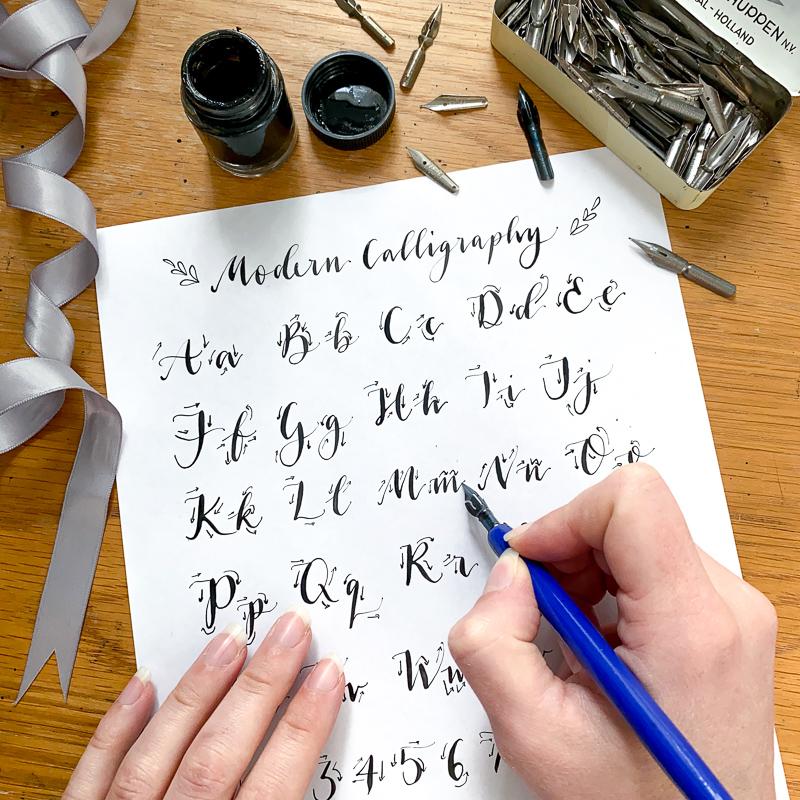 HUPPEN N.V.
AL-HOLLAND
Modern Calligraphy
A a B b C c D d E e
F f G g H h I i J j
K k L l M m N n O o
P p Q q R r
v W w
3 4 5 6